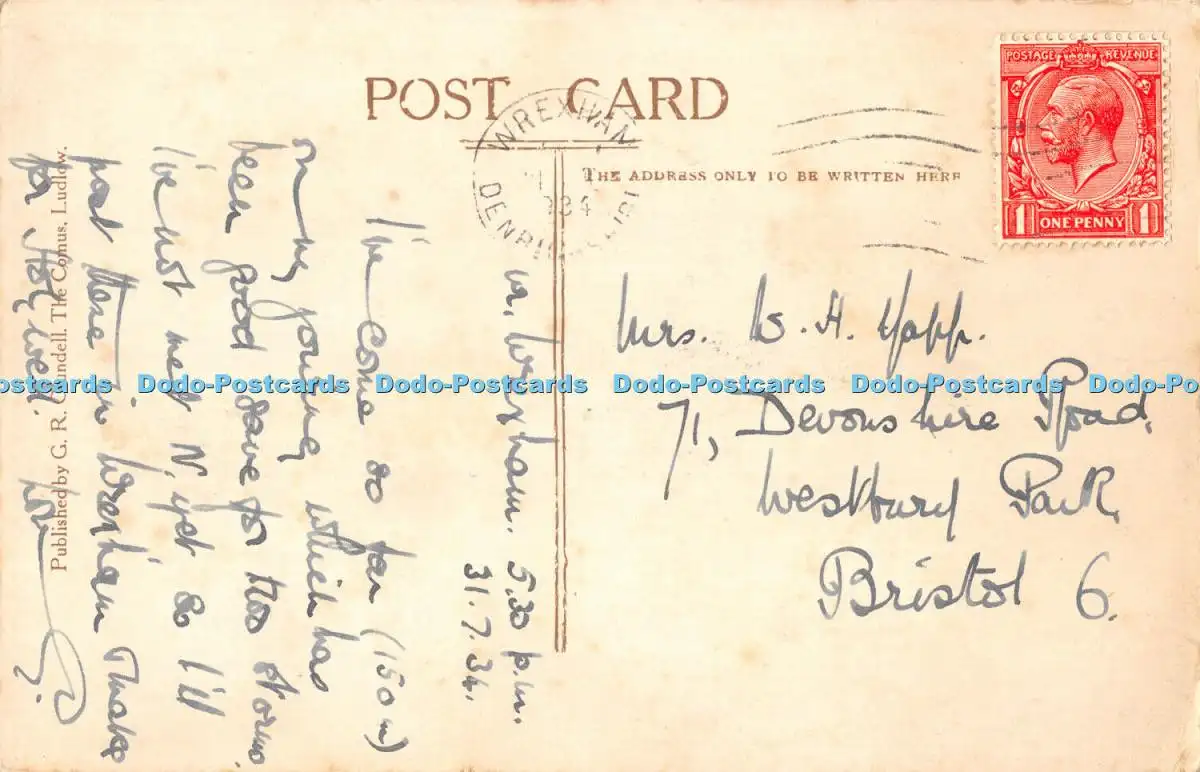 POST CARD
THE ADDRESS ONLY TO BE WRITTEN HERE
WREXHAM
DENBIGHSHIRE
1934
POSTAGE REVENUE
1 ONE PENNY 1
nr. Wrexham. 5.30 p.m.
31.7.34.
I've come so far (150 m)
on my journey which has
been good save for two storms.
I've not met N. yet so I'll
post there in Wrexham. Thanks
for
Mrs. W. H. Yapp.
71, Devonshire Road,
Westbury Park,
Bristol 6.
Published by G. R. Grundell, The Comus, Ludlow.
Dodo-Postcards Dodo-Postcards Dodo-Postcards Dodo-Postcards Dodo-Postcards Dodo-Postcards